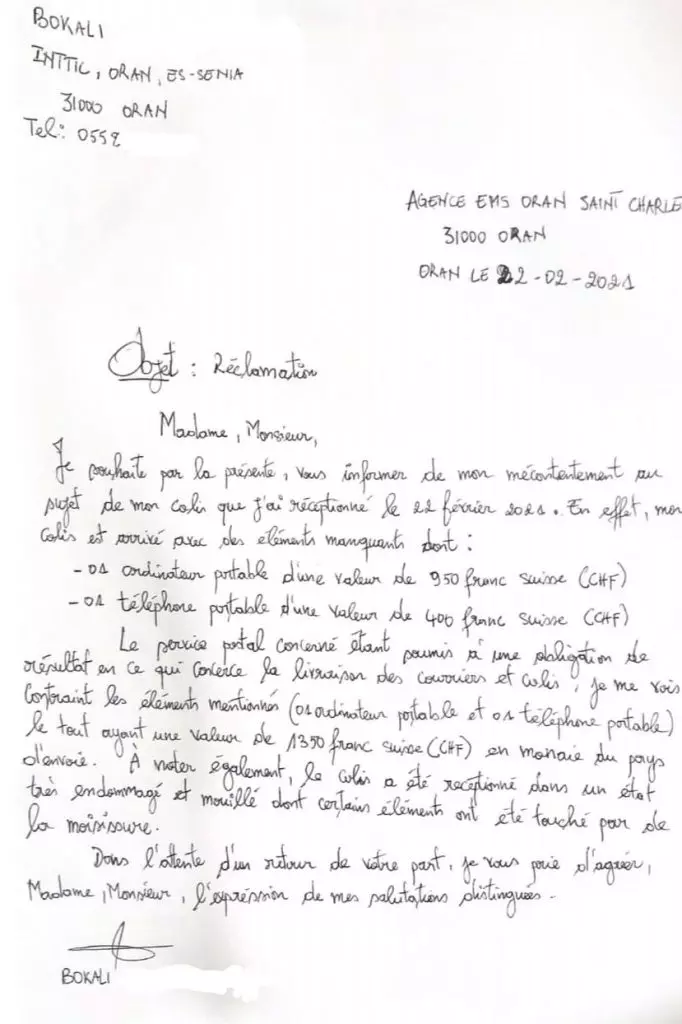 BOKALI
INTTIC, ORAN, ES-SENIA
31000 ORAN
Tel: 0552
AGENCE EMS ORAN SAINT CHARLE
31000 ORAN
ORAN LE 22-02-2021
Objet : Réclamation
Madame, Monsieur,
Je souhaite par la présente, vous informer de mon mécontentement au
sujet de mon colis que j'ai réceptionné le 22 février 2021. En effet, mon
colis est arrivé avec des eléments manquants dont :
- 01 ordinateur portable d'une valeur de 950 franc suisse (CHF)
- 01 téléphone portable d'une valeur de 400 franc suisse (CHF)
Le service postal concerné étant soumis à une obligation de
résultat en ce qui concerce la livraison des courriers et colis, je me vois
contraint les éléments mentionnés (01 ordinateur portable et 01 téléphone portable)
le tout ayant une valeur de 1350 franc suisse (CHF) en monaie du pays
d'envoie. À noter également, le colis a été receptionné dans un état
très endommagé et mouillé dont certains éléments ont été touché par de
la moisissure.
Dans l'attente d'un retour de votre part, je vous prie d'agréer,
Madame, Monsieur, l'expréssion de mes salutations distinguées.
BOKALI